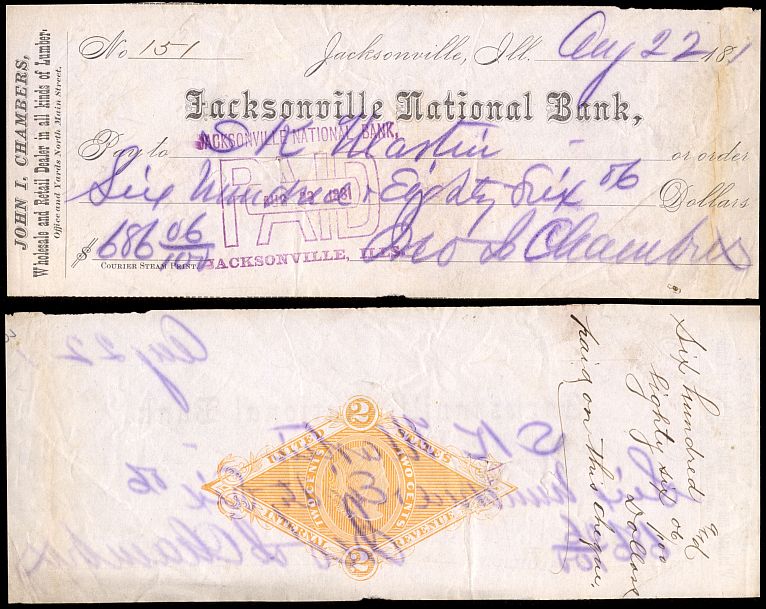 JOHN I. CHAMBERS,
Wholesale and Retail Dealer in all kinds of Lumber.
Office and Yards North Main Street.
No 151 Jacksonville, Ill. Aug 22 1881
Jacksonville National Bank,
Pay to S K Martin or order
Six Hundred & Eighty Six 06 Dollars
$ 686 06/100 Jno I Chambers
COURIER STEAM PRINT
JACKSONVILLE NATIONAL BANK,
PAID
22 1881
JACKSONVILLE, ILLS.
2
UNITED STATES
TWO CENTS TWO CENTS
INTERNAL REVENUE
2
Six hundred
Eighty six 06
Dollars
paid on this cheque,